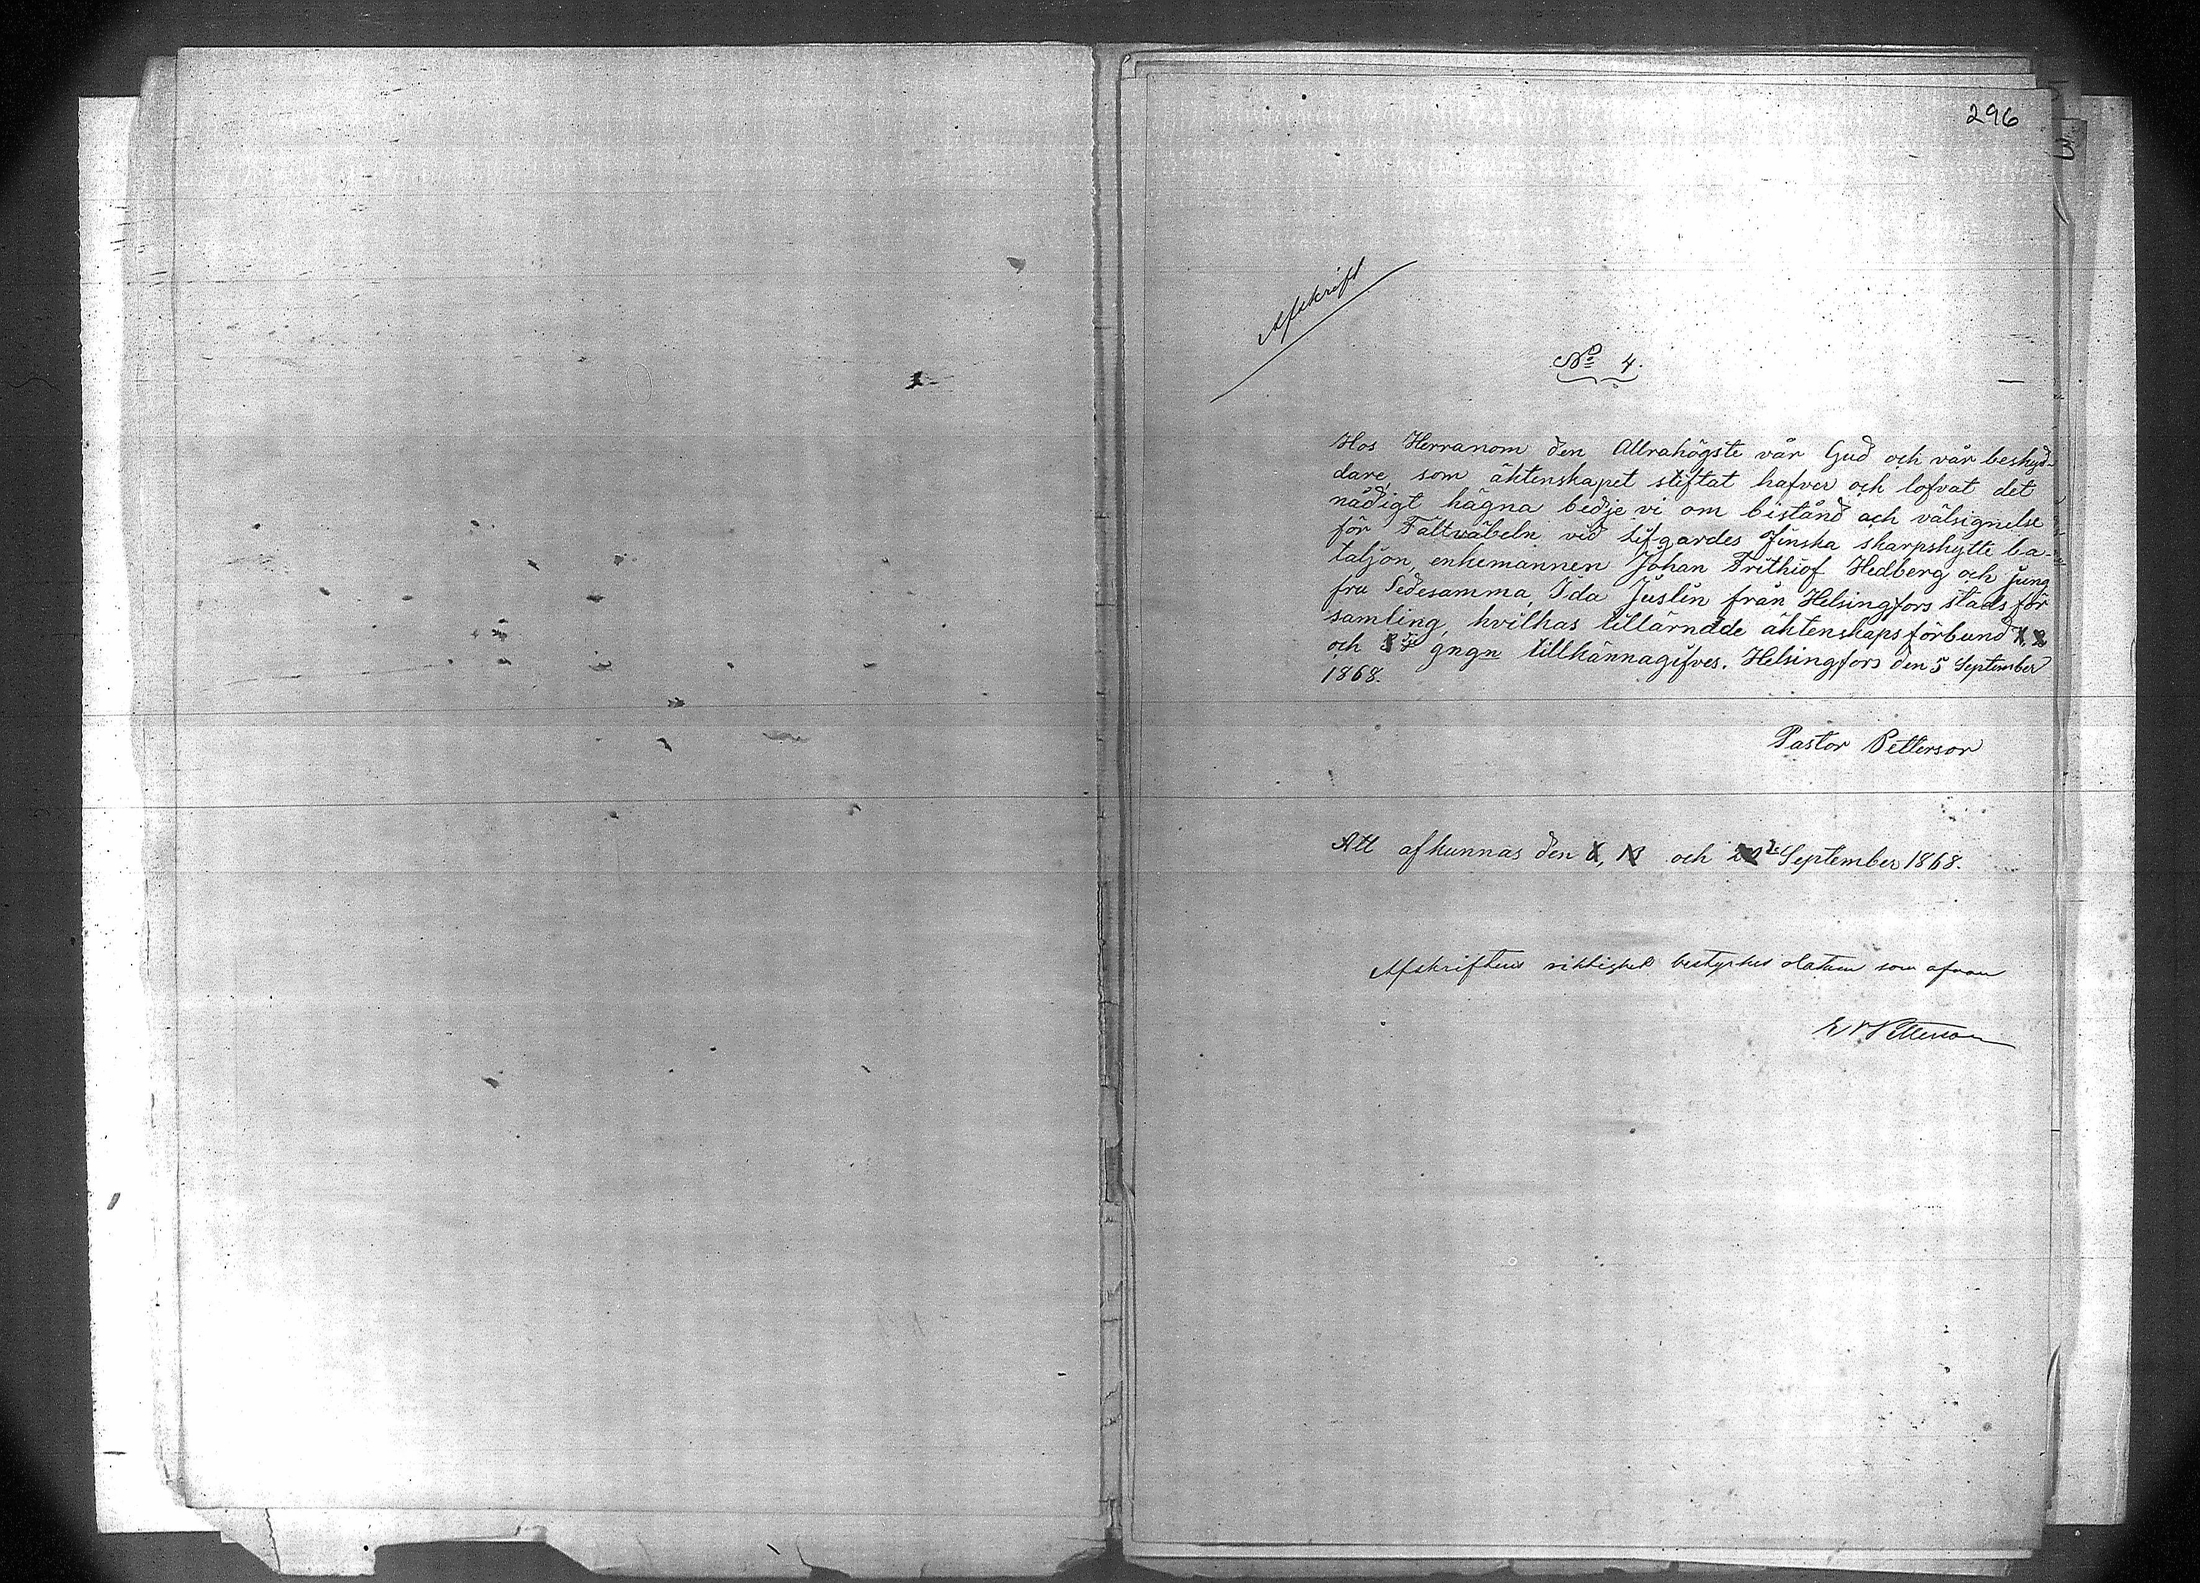 296
Afskrift
No 4.
Hos Herranom den Allrahögste vår Gud och vår beskyd-
dare, som äktenskapet stiftat hafver och lofvat det
nådigt hägna bedje vi om bistånd och välsignelse
för Fältväbeln vid Lifgardes Finska skarpskytte ba-
taljon, enkemannen Johan Frithiof Hedberg och jung
fru Sedesamma Ida Juslin från Helsingfors stads för
samling, hvilkas tillärnade äktenskapsförbund 1, 2
och 3dje gngn tillkännagifves. Helsingfors den 5 September
1868.
Pastor Petterson
Att afkunnas den 6, 13 och September 1868.
Afskriftens riktighet bestyrkes datum som ofvan
Petterson